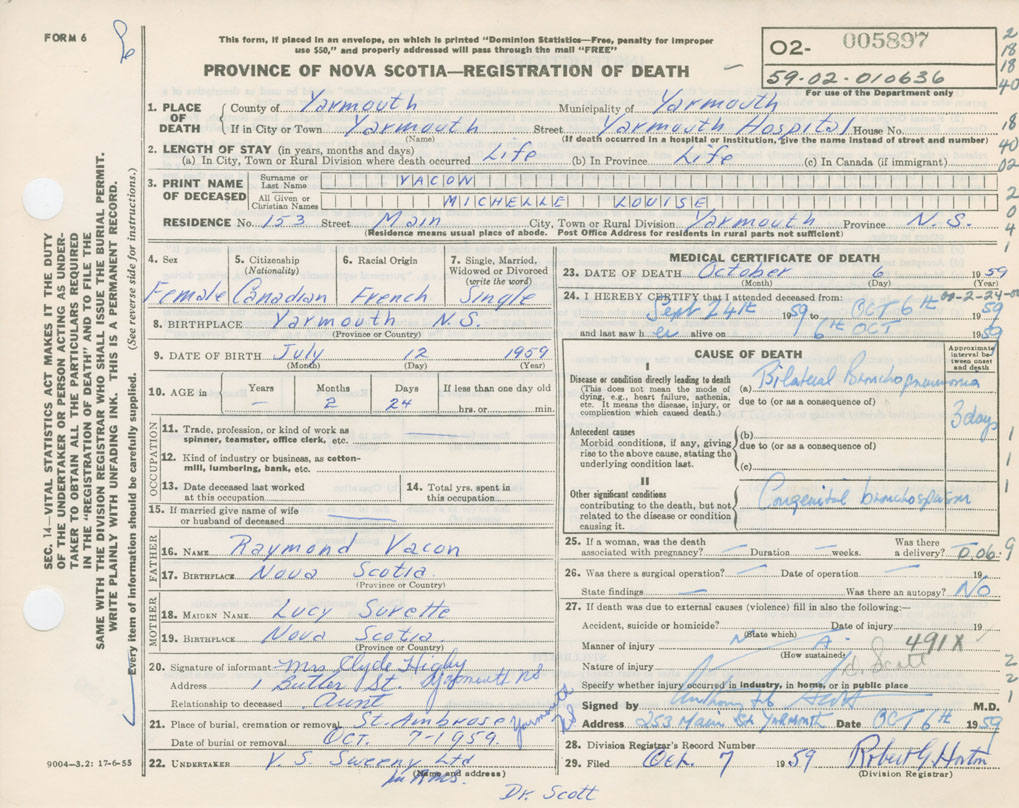 FORM 6
This form, if placed in an envelope, on which is printed "Dominion Statistics—Free, penalty for improper
use $50," and properly addressed will pass through the mail "FREE"
PROVINCE OF NOVA SCOTIA—REGISTRATION OF DEATH
02- 005897
59-02-010636
For use of the Department only
2
18
18
40
1. PLACE OF DEATH County of Yarmouth Municipality of Yarmouth
If in City or Town Yarmouth Street Yarmouth Hospital House No.
(Name) (If death occurred in a hospital or institution, give the name instead of street and number)
18
40
02
2. LENGTH OF STAY (in years, months and days)
(a) In City, Town or Rural Division where death occurred Life (b) In Province Life (c) In Canada (if immigrant)
3. PRINT NAME OF DECEASED
Surname or Last Name VACON
All Given or Christian Names MICHELLE LOUISE
RESIDENCE No. 153 Street Main City, Town or Rural Division Yarmouth Province N.S.
(Residence means usual place of abode. Post Office Address for residents in rural parts not sufficient)
2
0
4
1
4. Sex Female
5. Citizenship (Nationality) Canadian
6. Racial Origin French
7. Single, Married, Widowed or Divorced (write the word) Single
8. BIRTHPLACE Yarmouth N.S.
(Province or Country)
9. DATE OF BIRTH July 12 1959
(Month) (Day) (Year)
10. AGE in Years — Months 2 Days 24 If less than one day old
hrs. or min.
OCCUPATION
11. Trade, profession, or kind of work as
spinner, teamster, office clerk, etc.
12. Kind of industry or business, as cotton-
mill, lumbering, bank, etc.
13. Date deceased last worked
at this occupation
14. Total yrs. spent in
this occupation
15. If married give name of wife
or husband of deceased
FATHER
16. NAME Raymond Vacon
17. BIRTHPLACE Nova Scotia
(Province or Country)
MOTHER
18. MAIDEN NAME Lucy Surette
19. BIRTHPLACE Nova Scotia
(Province or Country)
20. Signature of informant Mrs Clyde Higby
Address 1 Butler St. Yarmouth NS
Relationship to deceased Aunt
21. Place of burial, cremation or removal St. Ambrose Yarmouth NS
Date of burial or removal OCT. 7-1959.
22. UNDERTAKER V. S. Sweeny Ltd
(Name and address)
MEDICAL CERTIFICATE OF DEATH
23. DATE OF DEATH October 6 1959
(Month) (Day)
24. I HEREBY CERTIFY that I attended deceased from: 00-2-24-00
Sept 24th 1959 to OCT 6th 1959
and last saw her alive on 6th OCT 1959
CAUSE OF DEATH
Approximate interval between onset and death
I
Disease or condition directly leading to death
(This does not mean the mode of
dying, e.g., heart failure, asthenia,
etc. It means the disease, injury, or
complication which caused death.)
(a) Bilateral Bronchopneumonia
due to (or as a consequence of)
3 days
Antecedent causes
Morbid conditions, if any, giving
rise to the above cause, stating the
underlying condition last.
(b)
due to (or as a consequence of)
(c)
1
1
1
II
Other significant conditions
contributing to the death, but not
related to the disease or condition
causing it.
Congenital bronchospasm
25. If a woman, was the death
associated with pregnancy? — Duration — weeks. Was there
a delivery? 0.06. 9
26. Was there a surgical operation? — Date of operation — 19
State findings — Was there an autopsy? No
27. If death was due to external causes (violence) fill in also the following:—
Accident, suicide or homicide? Date of injury 19
(State which)
Manner of injury N A. 491X
(How sustained)
Nature of injury
Scott
Specify whether injury occurred in industry, in home, or in public place
2
2
1
Signed by Anthony Scott M.D.
Address 253 Main St Yarmouth Date OCT 6th 1959
28. Division Registrar's Record Number
29. Filed Oct. 7 1959 Robert G. Horton
(Division Registrar)
Dr. Scott
9004-3.2: 17-6-55
SEC. 14—VITAL STATISTICS ACT MAKES IT THE DUTY
OF THE UNDERTAKER OR PERSON ACTING AS UNDER-
TAKER TO OBTAIN ALL THE PARTICULARS REQUIRED
IN THE "REGISTRATION OF DEATH" AND TO FILE THE
SAME WITH THE DIVISION REGISTRAR WHO SHALL ISSUE THE BURIAL PERMIT.
WRITE PLAINLY WITH UNFADING INK. THIS IS A PERMANENT RECORD.
Every item of information should be carefully supplied. (See reverse side for instructions.)